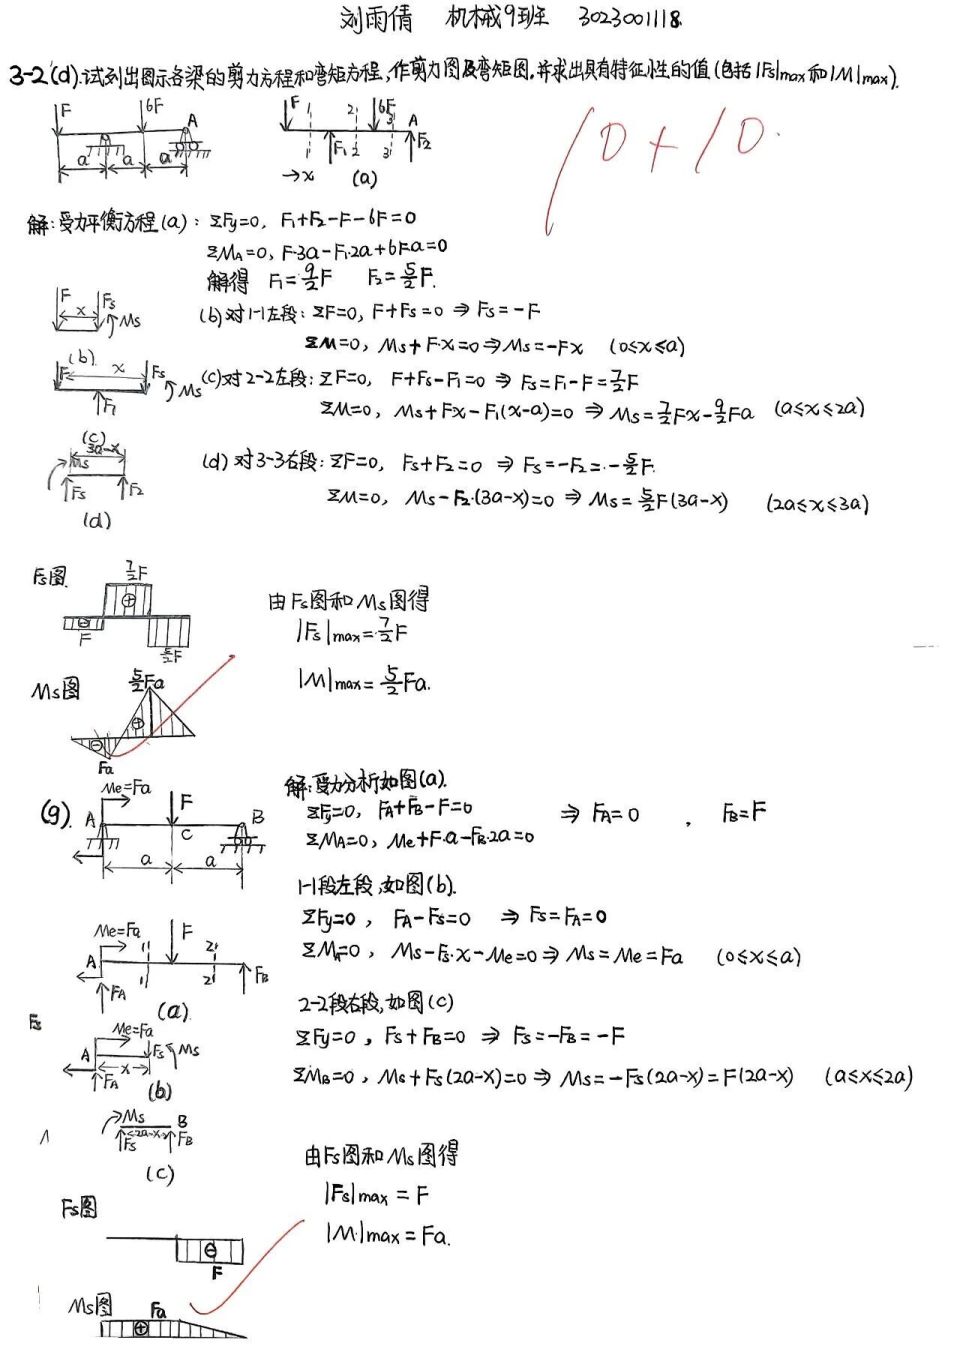 刘雨倩 机械9班 3023001118
3-2(d).试列出图示各梁的剪力方程和弯矩方程,作剪力图及弯矩图,并求出具有特征性的值(包括|Fs|max和|M|max).
F 6F A
a a a
F 1 2 6F 3 A
1 F₁ 2 3 F₂
→x (a)
10+10.
解:受力平衡方程(a): ΣFy=0, F₁+F₂-F-6F=0
ΣMA=0, F·3a-F₁·2a+6F·a=0
解得 F₁=9/2F F₂=5/2F.
F x Fs Ms
(b)
(b)对1-1左段: ΣF=0, F+Fs=0 ⇒ Fs=-F
ΣM=0, Ms+F·x=0 ⇒ Ms=-Fx (0≤x≤a)
F x Fs Ms
F₁
(c)
(c)对2-2左段: ΣF=0, F+Fs-F₁=0 ⇒ Fs=F₁-F=7/2F
ΣM=0, Ms+Fx-F₁(x-a)=0 ⇒ Ms=7/2Fx-9/2Fa (a≤x≤2a)
3a-x
Ms Fs F₂
(d)
(d)对3-3右段: ΣF=0, Fs+F₂=0 ⇒ Fs=-F₂=-5/2F.
ΣM=0, Ms-F₂·(3a-x)=0 ⇒ Ms=5/2F(3a-x) (2a≤x≤3a)
Fs图. 7/2F
⊕
⊖
F 5/2F
由Fs图和Ms图得
|Fs|max=7/2F
|M|max=5/2Fa.
Ms图 5/2Fa
⊕
⊖
Fa
(g). Me=Fa F
A C B
a a
解:受力分析如图(a).
ΣFy=0, FA+FB-F=0 ⇒ FA=0 , FB=F
ΣMA=0, Me+F·a-FB·2a=0
1-1段左段,如图(b).
ΣFy=0, FA-Fs=0 ⇒ Fs=FA=0
ΣMA=0, Ms-Fs·x-Me=0 ⇒ Ms=Me=Fa (0≤x≤a)
Me=Fa F
A 1 2
FA 1 2 FB
(a)
2-2段右段,如图(c)
ΣFy=0, Fs+FB=0 ⇒ Fs=-FB=-F
ΣMB=0, Ms+Fs(2a-x)=0 ⇒ Ms=-Fs(2a-x)=F(2a-x) (a≤x≤2a)
Fs
Me=Fa
A Fs Ms
FA x
(b)
Ms B
Fs 2a-x FB
(c)
由Fs图和Ms图得
|Fs|max=F
|M|max=Fa.
Fs图
⊖
F
Ms图 Fa
⊕